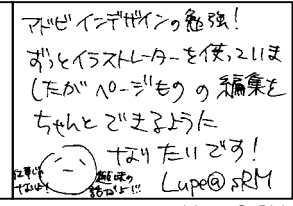 アドビ インデザインの勉強！
ずっとイラストレーターを使っていま
したが ページもの の 編集を
ちゃんと できるように
なりたいです！
仕事じゃ
ないよ！
趣味の
話だよ!!
Lupe@sRM